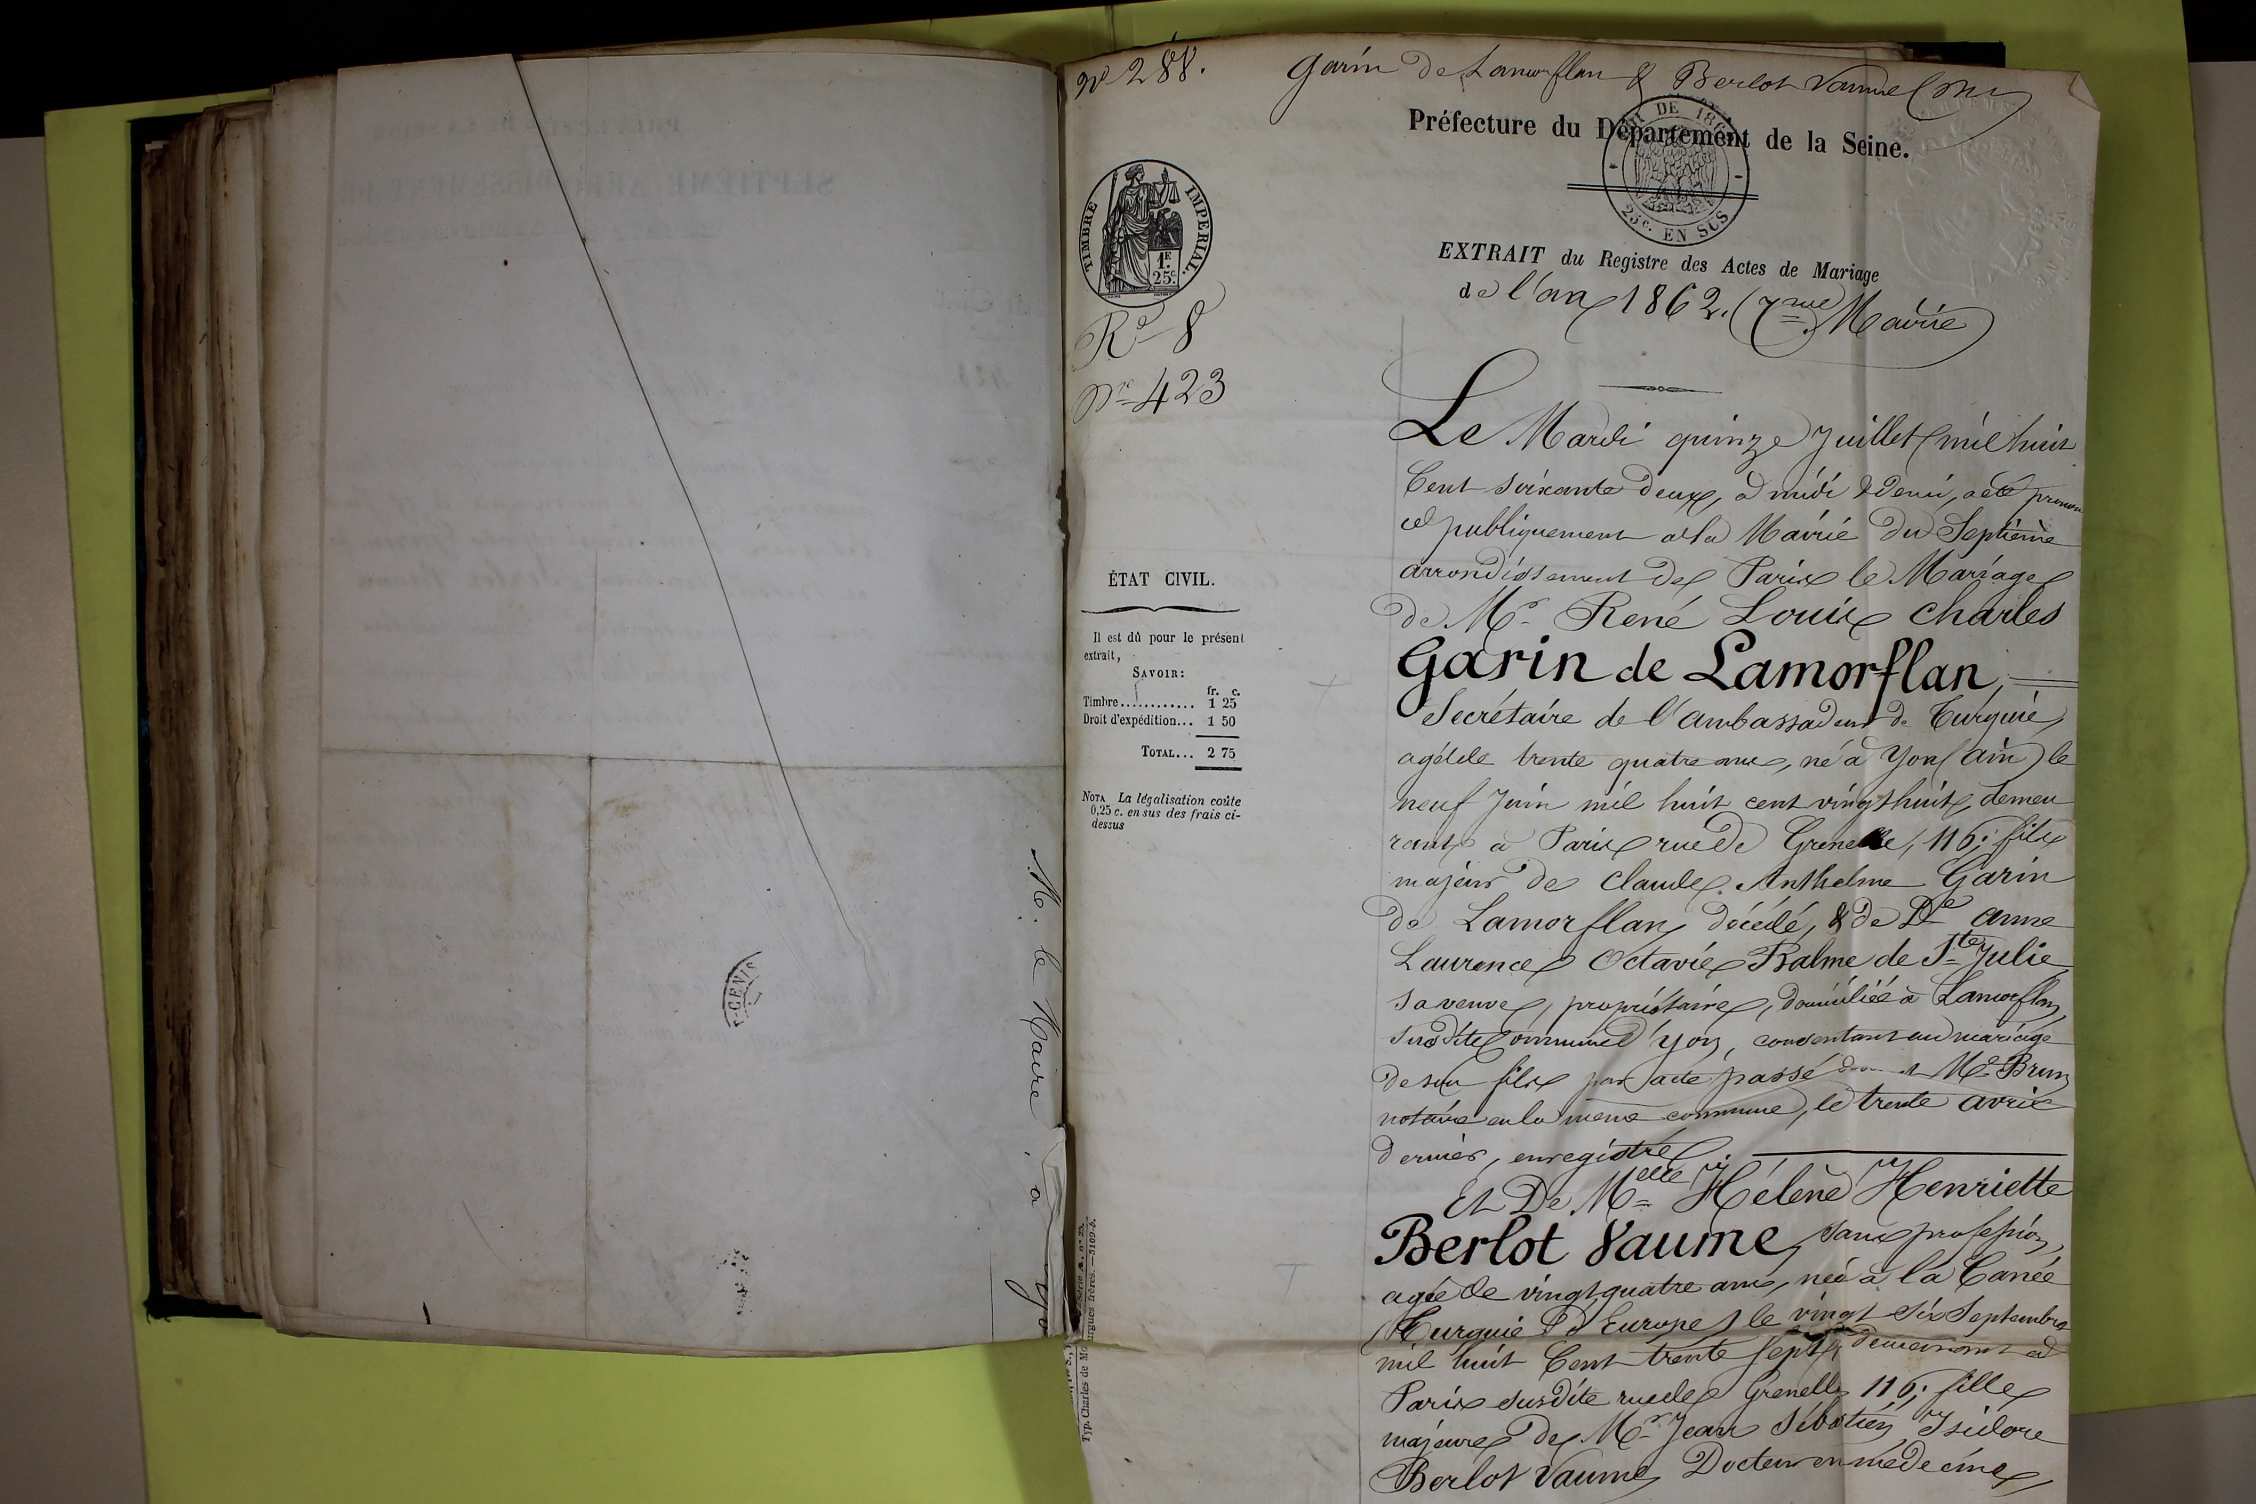 N° 288. Garin de Lamorflan & Berlot Vaume
Préfecture du Département de la Seine.
25c. EN SUS
TIMBRE IMPERIAL.
1F
25c.
EXTRAIT du Registre des Actes de Mariage
de l'an 1862. (7me Mairie)
Re 8
Nre 423
Le Mardi quinze Juillet mil huit
Cent soixante deux, à midi & demi, a été pronon
cé publiquement à la Mairie du Septième
arrondissement de Paris le Mariage
de Mr René Louis Charles
Garin de Lamorflan,
Secrétaire de l'ambassadeur de Turquie,
agé de trente quatre ans, né à Yon (ain) le
neuf Juin mil huit cent vingt huit, demeu
rant à Paris rue de Grenelle, 116; fils
majeur de Claude Anthelme Garin
de Lamorflan, décédé, & de De anne
Laurence Octavie Balme de Ste Julie
sa veuve, propriétaire, domiciliée à Lamorflan,
susdite Commune d'Yon, consentant au mariage
de son fils par acte passé devant Me Brun
notaire en la même commune, le trente avril
dernier, enregistré.
Et De Melle Hélène Henriette
Berlot Vaume, sans profession,
agée de vingt quatre ans, née à la Canée
(Turquie d'Europe) le vingt six Septembre
mil huit Cent trente sept, demeurant à
Paris susdite rue de Grenelle 116; fille
majeure de Mr Jean Sébastien Isidore
Berlot Vaume, Docteur en médecine,
ÉTAT CIVIL.
Il est dû pour le présent
extrait,
SAVOIR:
fr. c.
Timbre............ 1 25
Droit d'expédition... 1 50
TOTAL... 2 75
NOTA La légalisation coûte
0,25 c. en sus des frais ci-
dessus
M. le Maire à
Typ. Charles de Mourgues frères.